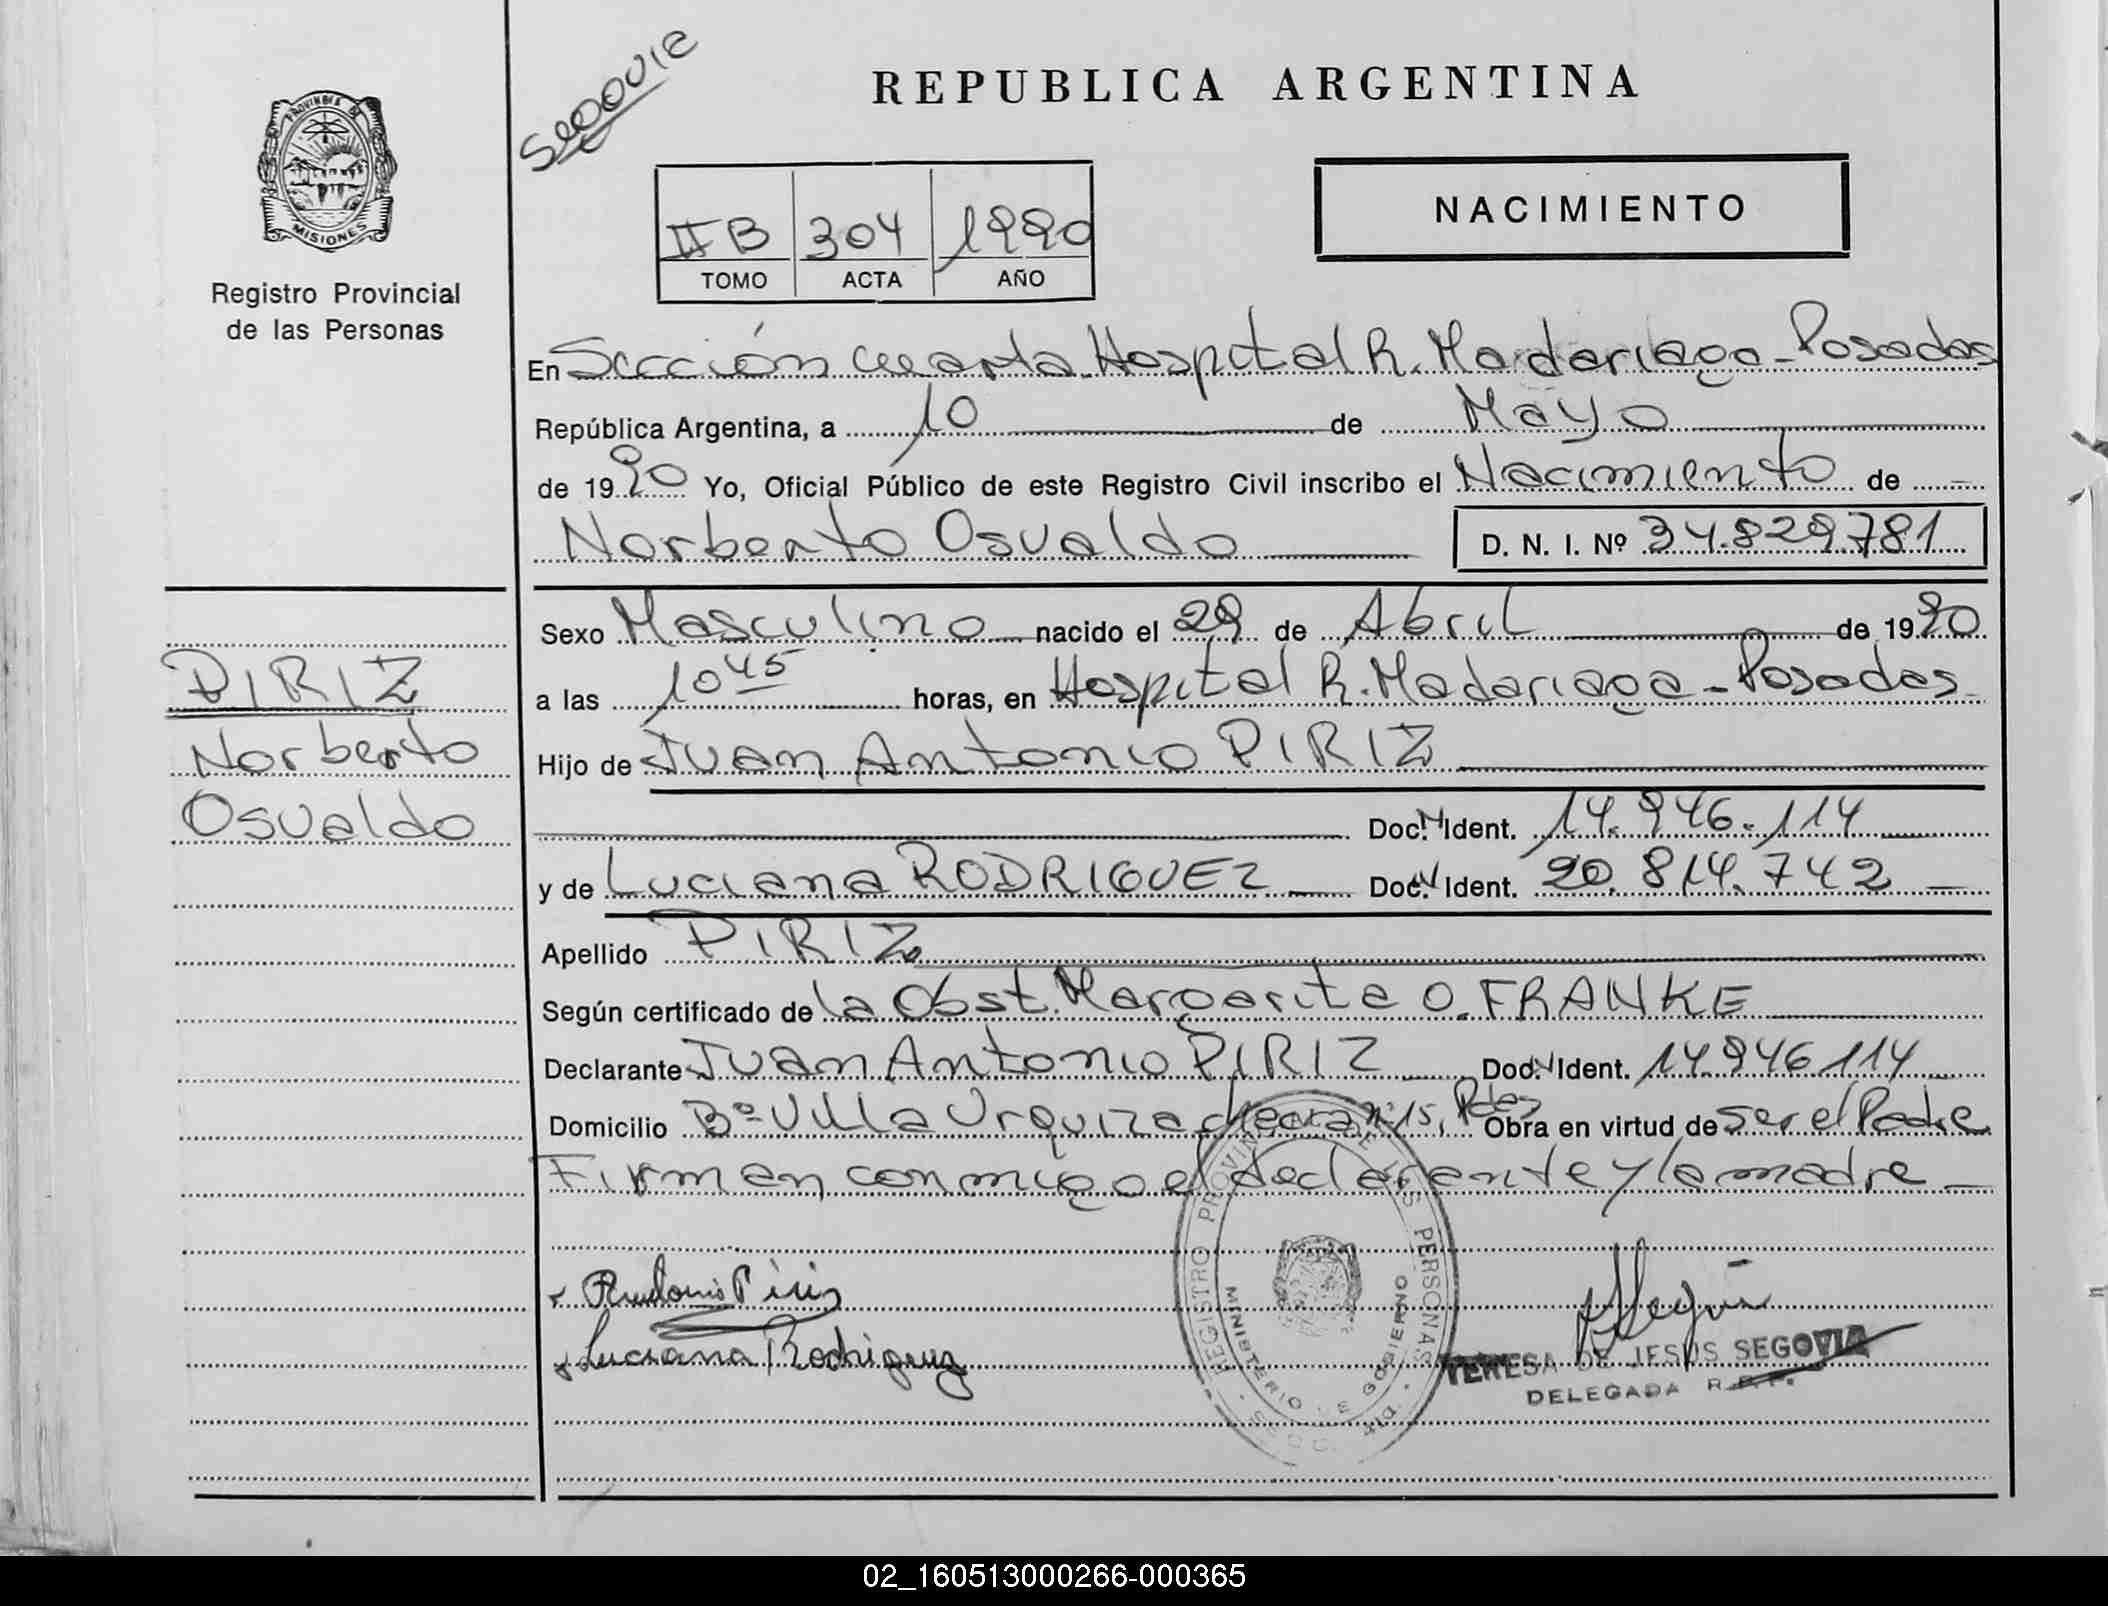 Segovia
REPUBLICA ARGENTINA
PROVINCIA DE
MISIONES
Registro Provincial
de las Personas
IIB 304 1990
TOMO ACTA AÑO
NACIMIENTO
En Sección cuarta Hospital R. Madariaga - Posadas
República Argentina, a 10 de Mayo
de 1990 Yo, Oficial Público de este Registro Civil inscribo el Nacimiento de
Norberto Osvaldo D. N. I. Nº 34.829.781
Sexo Masculino nacido el 29 de Abril de 1990
a las 10 45 horas, en Hospital R. Madariaga - Posadas
Hijo de Juan Antonio PIRIZ
Doc. N Ident. 14.946.114
y de Luciana RODRIGUEZ Doc. N Ident. 20.814.742
Apellido PIRIZ
Según certificado de la Obst. Margarita O. FRANKE
Declarante Juan Antonio PIRIZ Doc. N Ident. 14.946.114
Domicilio Bº Villa Urquiza chacra Nº 15, Pdas Obra en virtud de ser el Padre
Firman conmigo el declarante y la madre
PIRIZ
Norberto
Osvaldo
Luciana Rodriguez
REGISTRO PROVINCIAL DE LAS PERSONAS
MINISTERIO DE GOBIERNO
TERESA DE JESUS SEGOVIA
DELEGADA R.P.P.
02_160513000266-000365